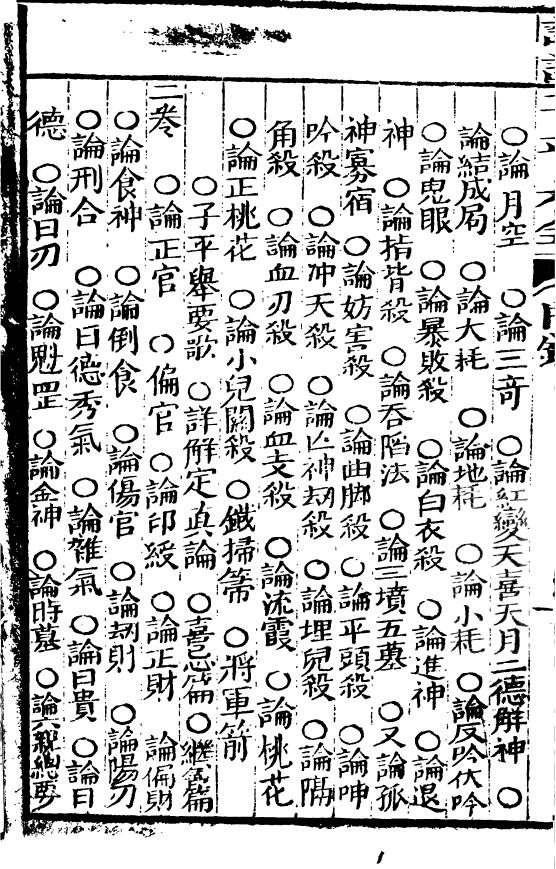 目錄
○論月空　○論三奇　○論紅鸞天喜天月二德解神　○
論結成局　○論大耗　○論地耗　○論小耗　○論反吟伏吟
○論鬼眼　○論暴敗殺　○論白衣殺　○論進神　○論退
神　○論指背殺　○論吞陷法　○論三墳五墓　○又論孤
神寡宿　○論妨害殺　○論曲脚殺　○論平頭殺　○論呻
吟殺　○論冲天殺　○論亡神劫殺　○論埋兒殺　○論隔
角殺　○論血刃殺　○論血支殺　○論流霞　○論桃花
○論正桃花　○論小兒關殺　○鐵掃箒　○將軍箭
○子平舉要歌　○詳解定眞論　○喜忌篇　○繼善篇
二卷　○論正官　○偏官　○論印綬　○論正財　論偏財
○論食神　○論倒食　○論傷官　○論劫財　○論陽刃
○論刑合　○論日德秀氣　○論雜氣　○論日貴　○論日
德　○論日刃　○論魁罡　○論金神　○論時墓　○論六親總要